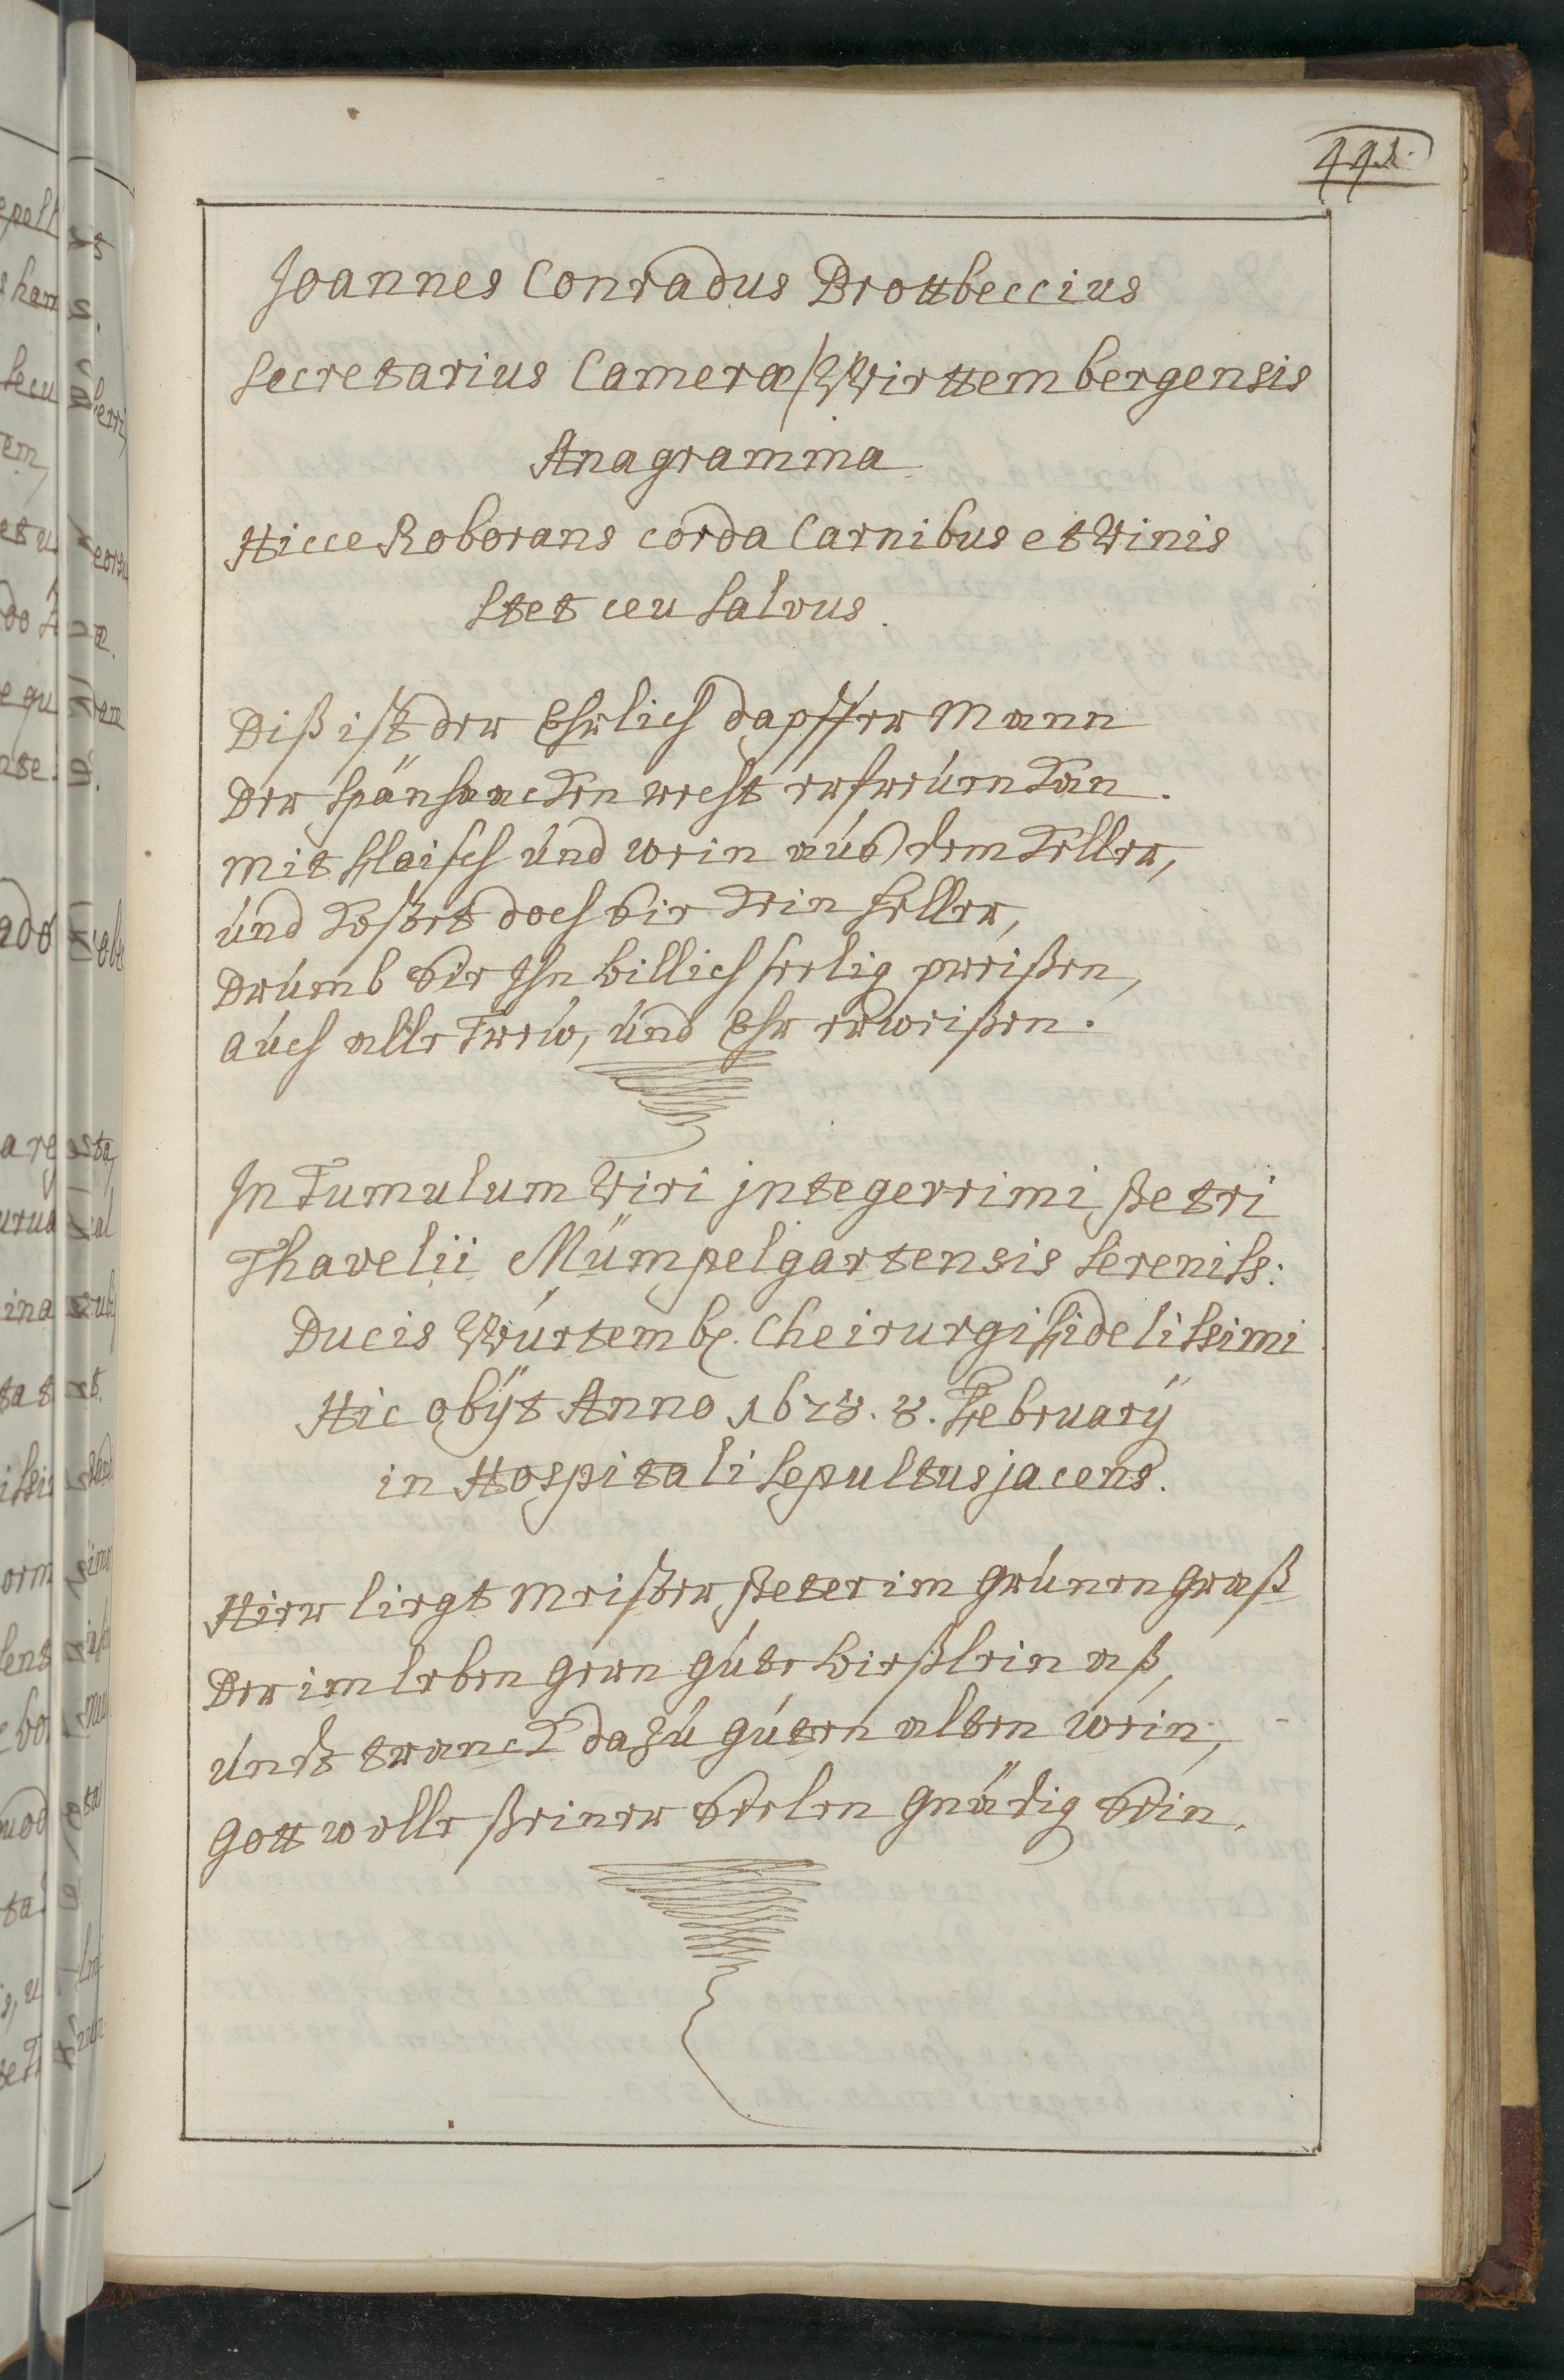 Joannes Conradus Brottbeccius
Secretarius Cameræ Wirttembergensis
Anagramma
Hicce Roborans corda Carnibus et Vinis
Stet ceu Salvus.
Diß ist der Ehrlich dapffer Mann
Der recht erfreüen kan.
mit fflaisch und wein auß dem keller,
und kostet doch kein heller,
Drumb wir Ihn billich seelig preißen,
auch alle Trew, und Ehr erweißen.
In Tumulum Viri jntegerrimi, Petri
Thavelii Mümpelgartensis Sereniss:
Ducis Würtemb. Cheirurgi ffidelissimi
Hic obÿt Anno 1628. 8. Februarÿ
in Hospitali Sepultus jacens.
Hier liegt Meister Peter im Grünen Graß
Der im leben gern gute bießlein aß,
undt tranck dazu guten alten wein,
Gott wolle seiner Seelen Gnädig sein.